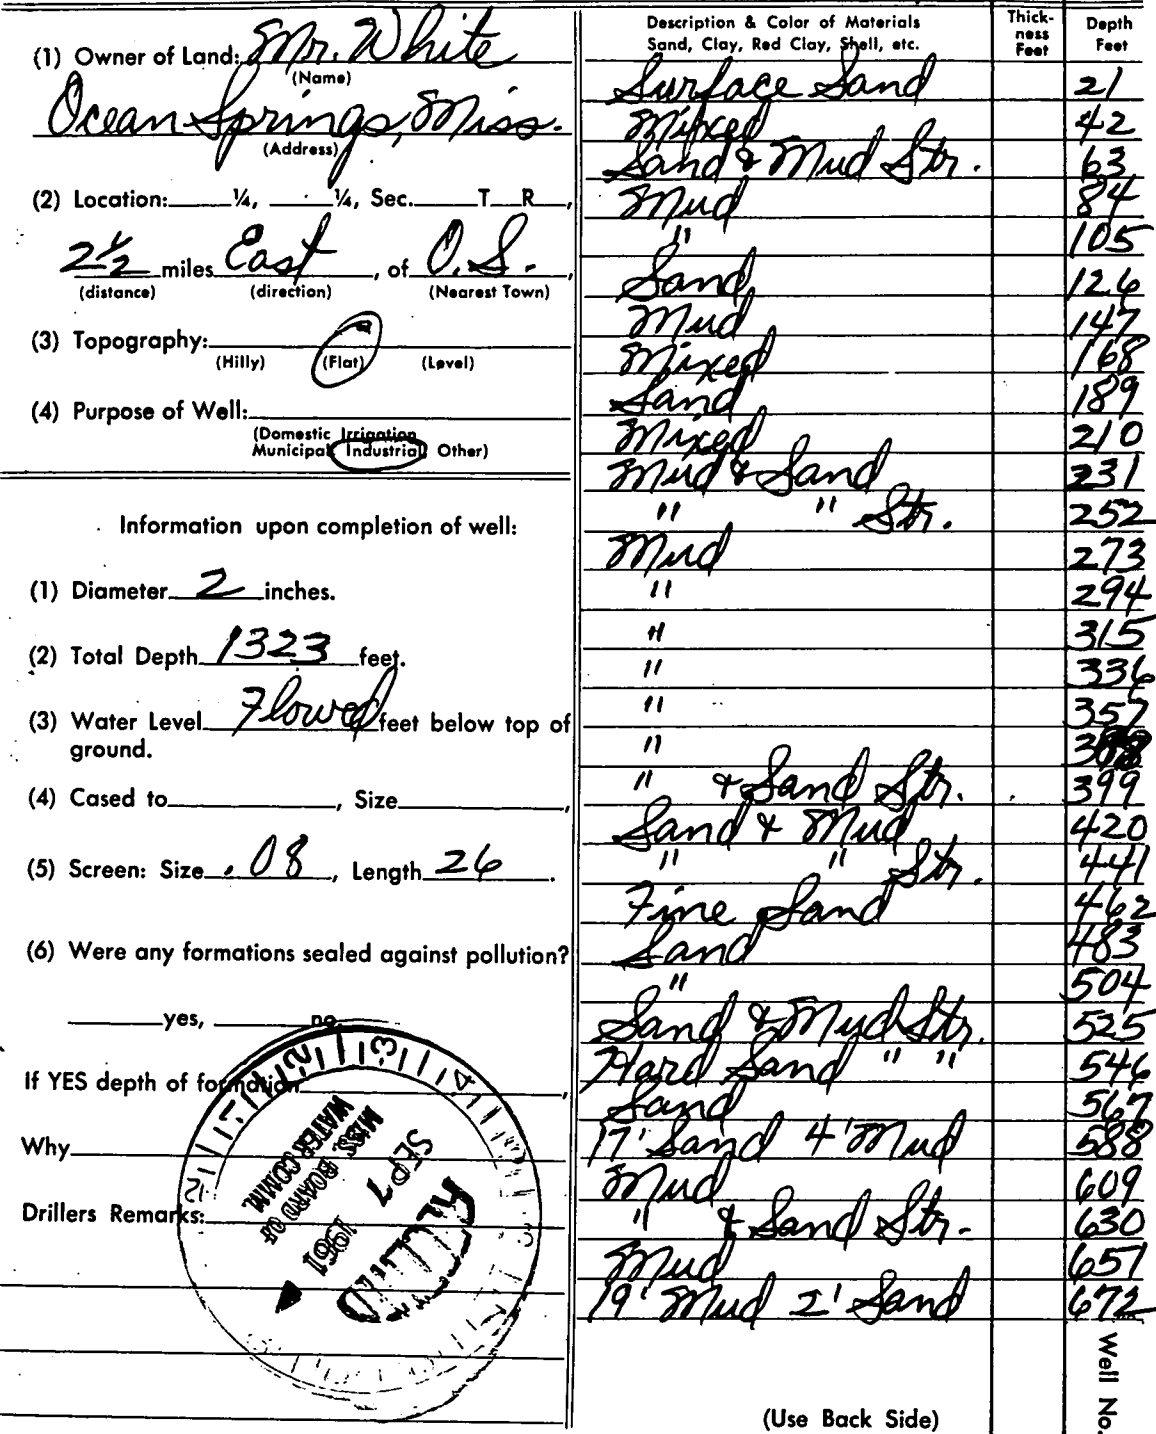 (1) Owner of Land: Mr. White
(Name)
Ocean Springs, Miss.
(Address)
(2) Location: ¼, ¼, Sec. T R ,
2½ miles East , of O.S. ,
(distance) (direction) (Nearest Town)
(3) Topography:
(Hilly) (Flat) (Level)
(4) Purpose of Well:
(Domestic Irrigation
Municipal Industrial Other)
Information upon completion of well:
(1) Diameter 2 inches.
(2) Total Depth 1323 feet.
(3) Water Level Flowed feet below top of
ground.
(4) Cased to , Size ,
(5) Screen: Size .08 , Length 26 .
(6) Were any formations sealed against pollution?
yes, no
If YES depth of formation ,
Why
Drillers Remarks:
RECEIVED
SEP 7 1961
MISS. BOARD OF
WATER COMM.
Description & Color of Materials Thick- Depth
Sand, Clay, Red Clay, Shell, etc. ness Feet
Feet
Surface Sand 21
Mixed 42
Sand & Mud Str. 63
Mud 84
" 105
Sand 126
Mud 147
Mixed 168
Sand 189
Mixed 210
Mud & Sand 231
" " Str. 252
Mud 273
" 294
" 315
" 336
" 357
"
" & Sand Str. 399
Sand & Mud 420
" " Str. 441
Fine Sand 462
Sand 483
" 504
Sand & Mud Str. 525
Hard Sand " " 546
Sand 567
17' Sand 4' Mud 588
Mud 609
" & Sand Str. 630
Mud 651
19' Mud 2' Sand 672
(Use Back Side)
Well No.